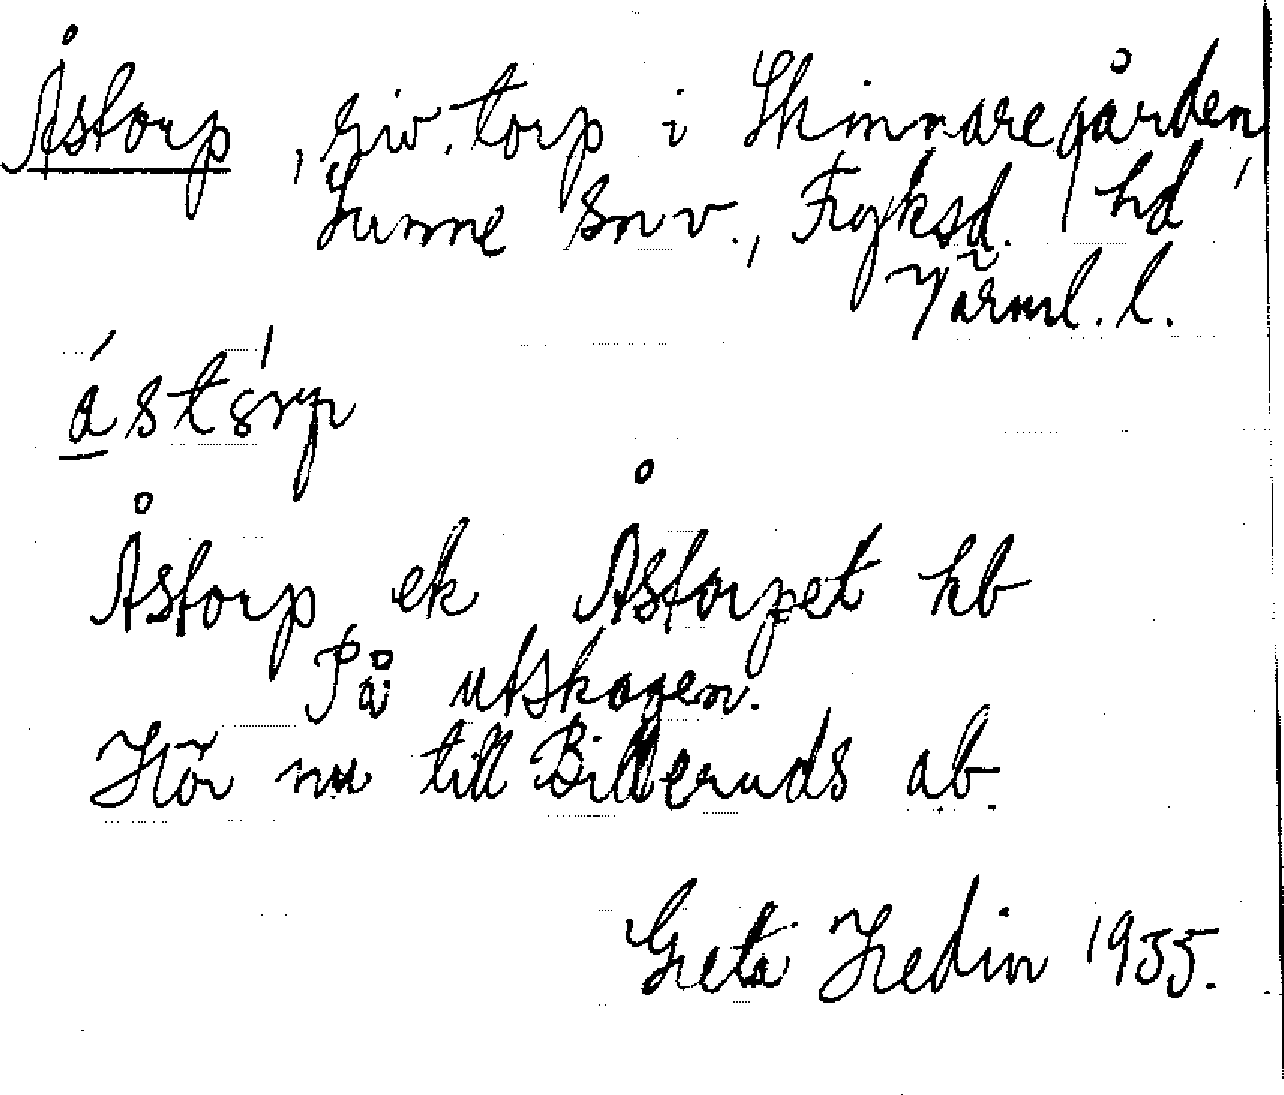 Åstorp, riv. torp i Skinnaregården,
Sunne sn v., Fryksd. hd
Värml. l.
Åstorp ek Åstorpet kb
På utskogen.
Hör nu till Billeruds ab.
Greta Hedin 1955.